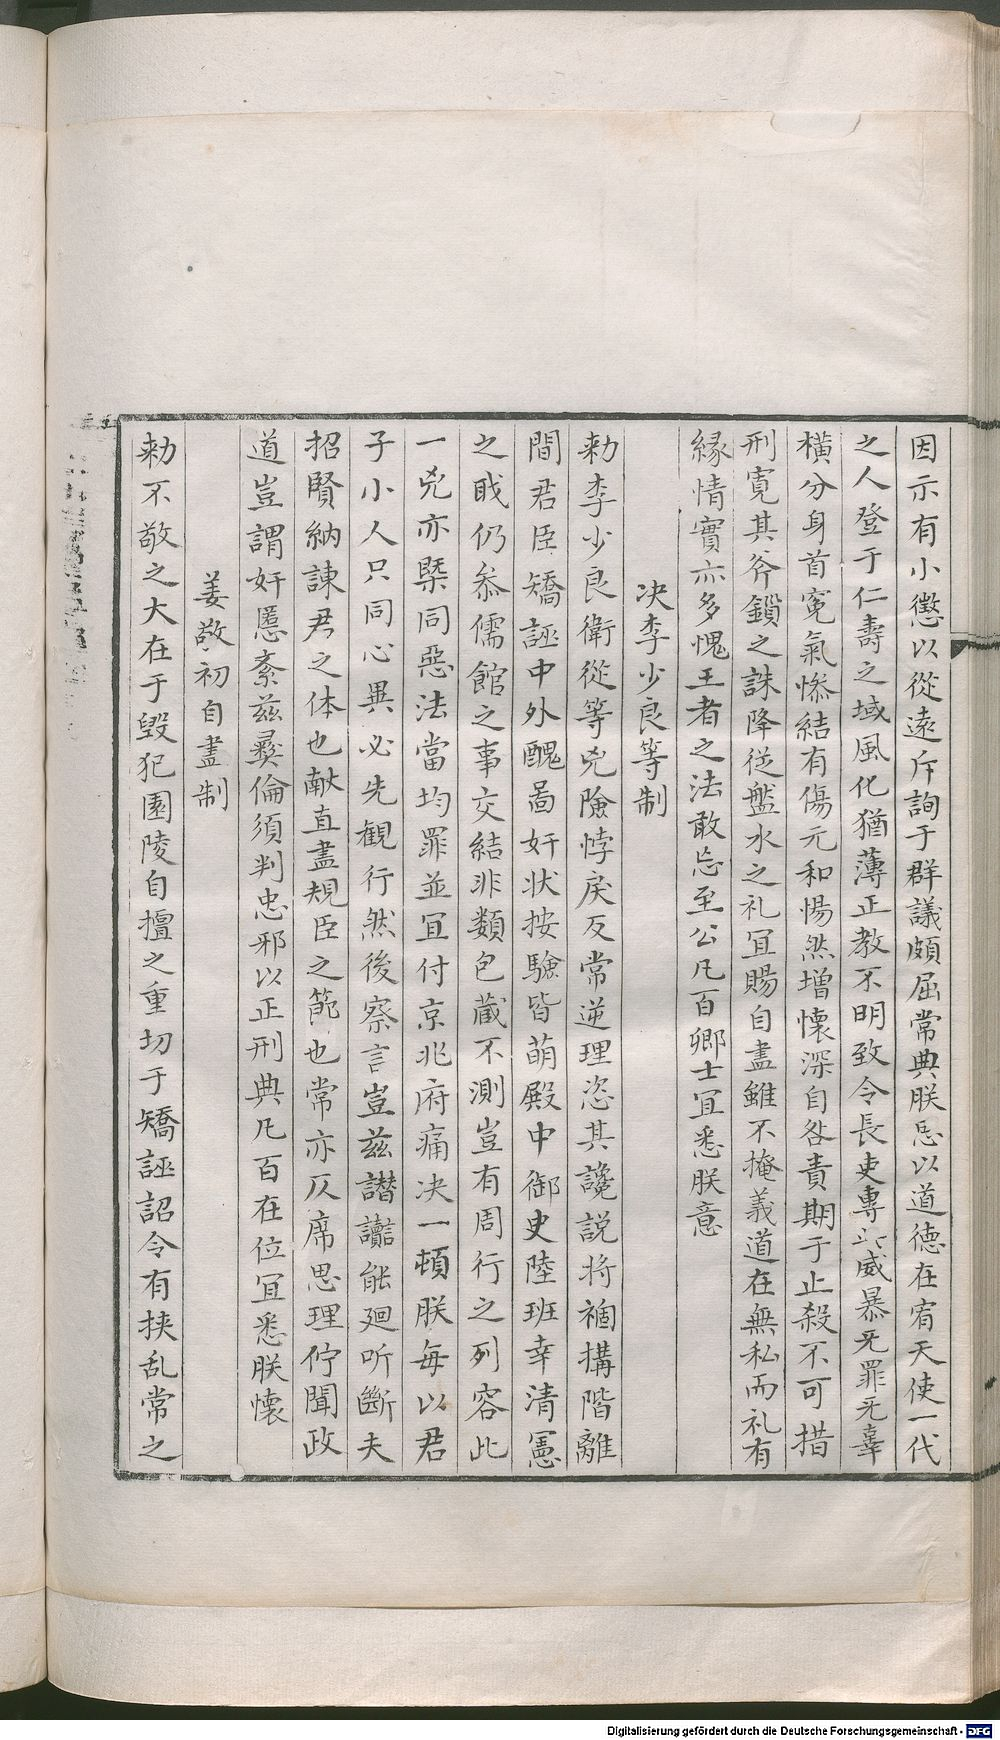 因示有小懲以從遠斥詢于群議頗屈常典朕忌以道德在宥天使一代
之人登于仁壽之域風化猶薄正教不明致令長吏專㳄威暴旡罪旡辜
橫分身首寃氣慘結有傷元和惕然增懷深自咎責期于止殺不可措
刑寛其斧鎖之誅降従盤水之礼冝賜自盡雖不掩義道在無私而礼有
緣情實亦多愧王者之法敢忘至公凡百卿士冝悉朕意
决李少良等制
勑李少良衛從等兇險悖戾反常逆理恣其讒説将禍搆階離
間君臣矯誣中外醜啚奸状按驗皆萌殿中御史陸班幸清憲
之戢仍叅儒館之事交結非類包蔵不測豈有周行之列容此
一兇亦槩同惡法當均罪並冝付京兆府痛决一頓朕每以君
子小人只同心異必先観行然後察言豈兹譛讟能廻听斷夫
招賢納諫君之体也献直盡規臣之節也常亦仄席思理佇聞政
道豈謂奸慝紊兹彛倫須判忠邪以正刑典凡百在位冝悉朕懷
姜敬初自盡制
勑不敬之大在于毁犯園陵自擅之重切于矯誣詔令有挟乱常之
Digitalisierung gefördert durch die Deutsche Forschungsgemeinschaft - DFG